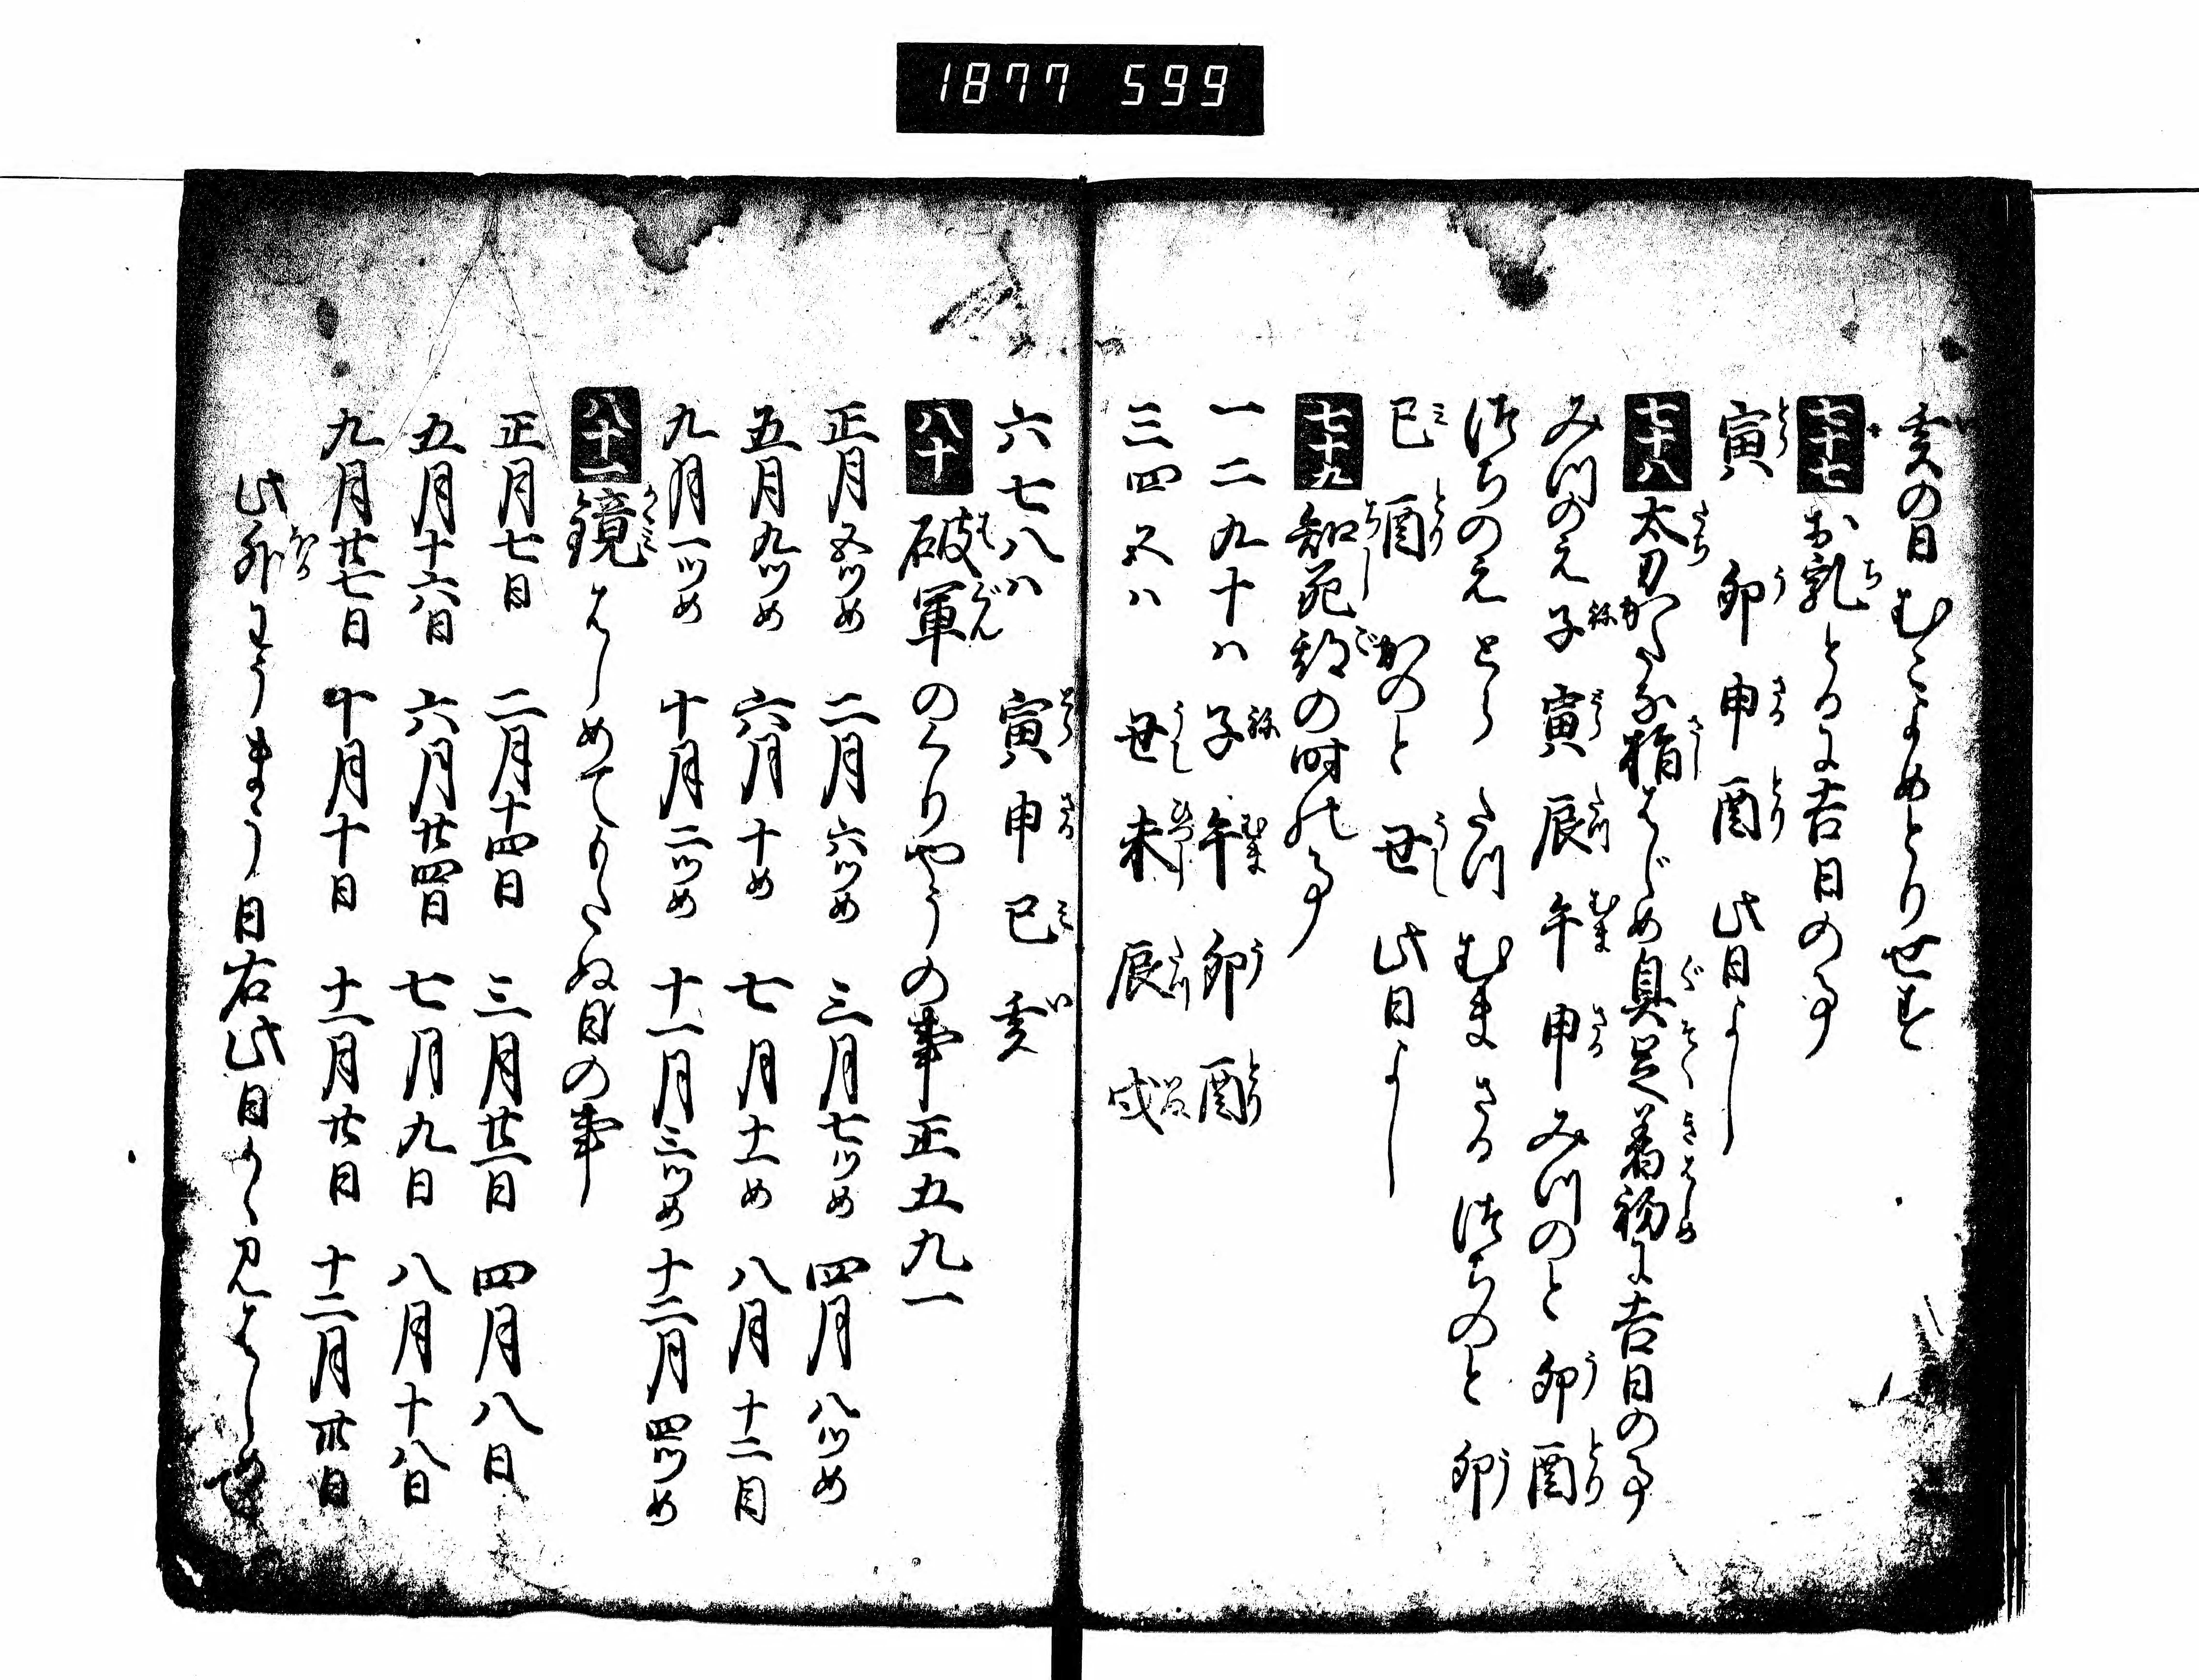 1877 599
亥の日むこよめとりせす
七十七 お乳とるに吉日の事
寅 卯 申 酉 此日よし
七十八 太刀かたな指はじめ具足着初に吉日の事
みつのえ 子 寅 辰 午 申 みつのと 卯 酉
つちのえ とら たつ むま さる つちのと 卯
巳 酉 かのと 丑 此日よし
七十九 知死期の時の事
一二九十ハ 子 午 卯 酉
三四五ハ 丑 未 辰 戌
六七八ハ 寅 申 巳 亥
八十 破軍のくりやうの事 正五九一
正月五ツめ 二月六ツめ 三月七ツめ 四月八ツめ
五月九ツめ 六月十め 七月十一め 八月十二目
九月一ツめ 十月二ツめ 十一月三ツめ 十二月四ツめ
八十一 鏡はしめてもたぬ日の事
正月七日 二月十四日 三月廿一日 四月八日
五月十六日 六月廿四日 七月九日 八月十八日
九月廿七日 十月十日 十一月廿日 十二月卅日
此外わうまう日右此日かゝ見はしめ